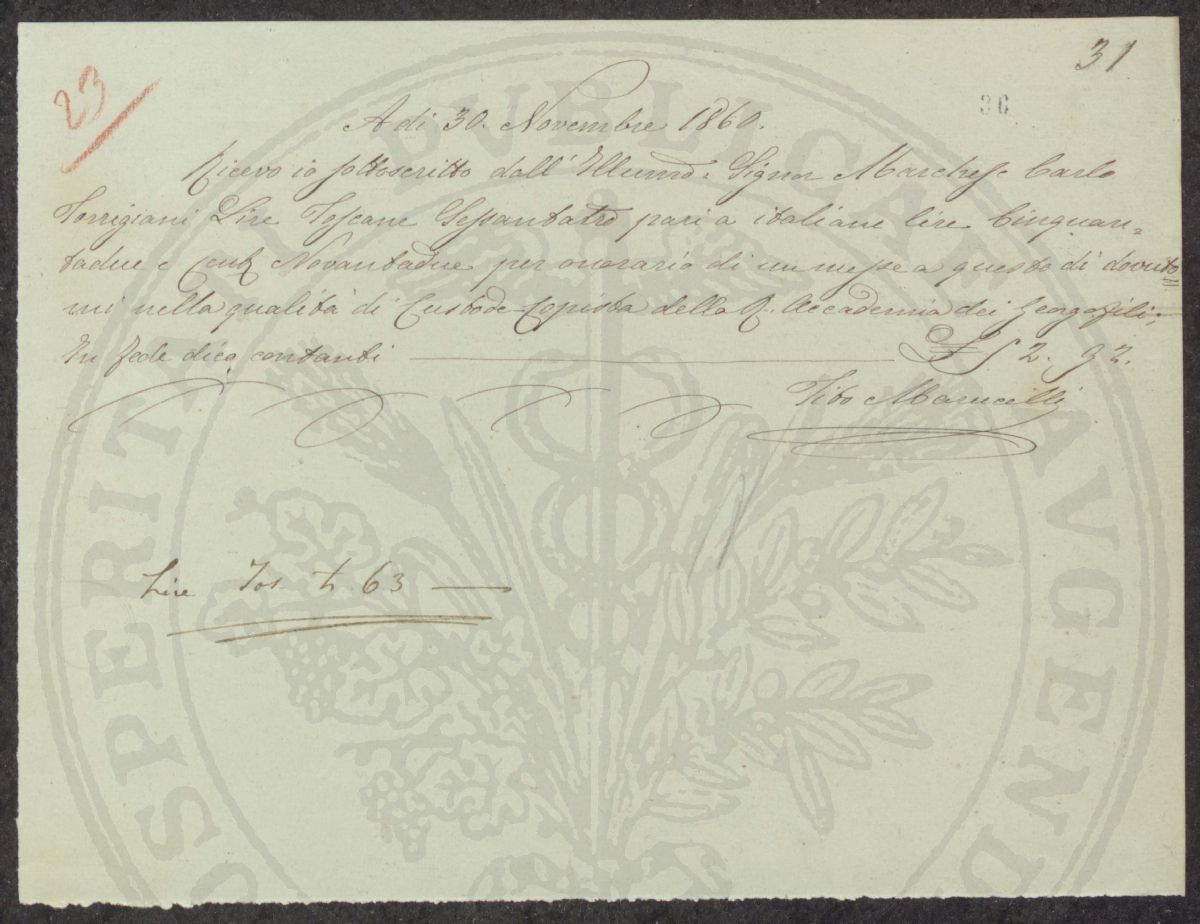 23
31
36
A di 30. Novembre 1860.
Ricevo io sottoscritto dall' Illumo: Signor Marchese Carlo
Torrigiani Lire Toscane Sessantatre pari a italiane lire Cinquan=
tadue e Cent. Novantadue per onorario di un mese a questo dì dovuto=
mi nella qualità di Custode-Copista della R. Accademia dei Georgofili;
In fede dico contanti £ 52. 92.
Tito Marucelli
Lire Tos. L. 63
PROSPERITATI PVBLICAE AVGENDAE